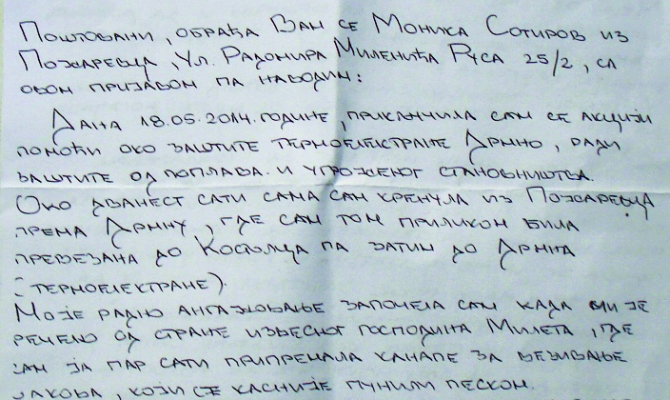 Поштовани, обраћа Вам се Моника Сотиров из
Пожаревца, Ул. Радомира Миленића Руса 25/2, са
овом пријавом па наводим:
Дана 18.05.2014. године, прикључила сам се акцији
помоћи око заштите термоелектране Дрмно, ради
заштите од поплава. и угроженог становништва.
Око дванест сати сама сам кренула из Пожаревца
према Дрмну, где сам том приликом била
превезана до Костолца па затим до Дрмна
(термоелектране).
Моје радно ангажовање започела сам када ми је
речено од стране извесног господина Милета, где
сам ја пар сати припремала канапе за везивање
џакова, који се касније пунили песком.